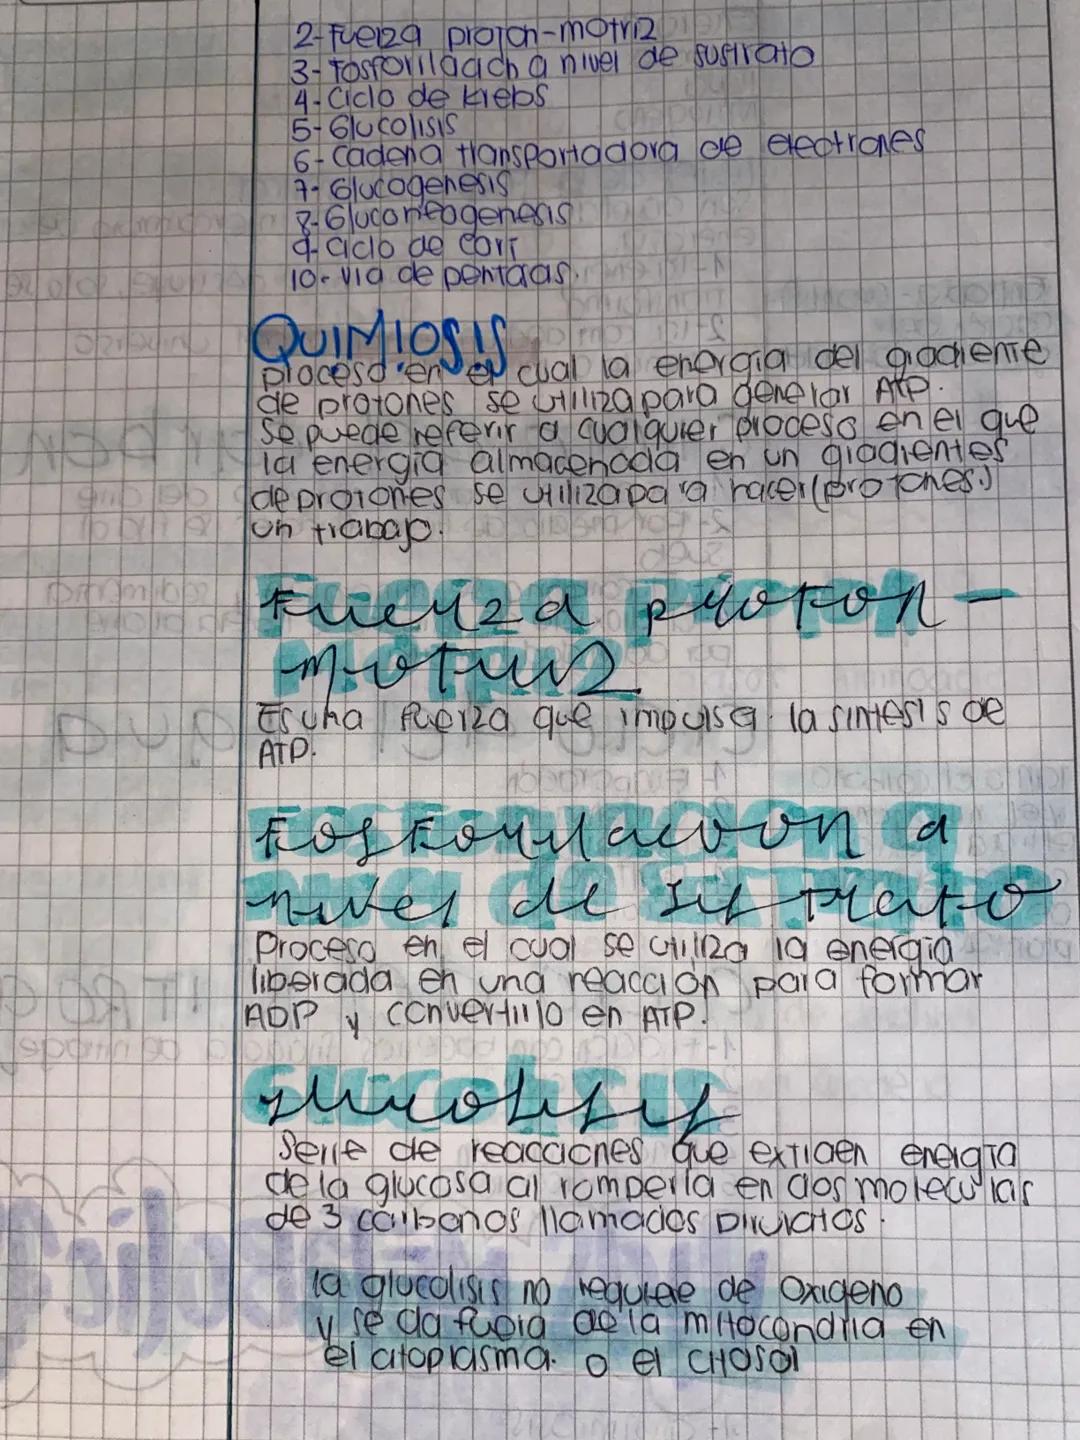 2-Fuerza proton-motriz
3-Fosforilaach a nivel de sustrato
4-Ciclo de Krebs
5-Glucolisis
6-cadena transportadora de electrones
7-Glucogenesis
8-Gluconeogenesis
9-ciclo de cori
10-via de pentosas.
QUIMIOSIS
proceso en el cual la energia del gradiente
de protones se utiliza para generar ATP.
se puede referir a cualquier proceso en el que
la energia almacenada en un gradientes
de protones se utiliza para hacer (protones.)
un trabajo.
Fuerza proton-
motriz
Es una fuerza que impulsa la sintesis de
ATP.
Fosforilacion a
nivel de sustrato
Proceso en el cual se utiliza la energia
liberada en una reacción para formar
ADP y convertirlo en ATP.
glucolisis
Serie de reacciones que extraen energia
de la glucosa al romperla en dos moleculas
de 3 carbonos llamados piruvatos.
la glucolisis no requiere de oxigeno
y se da fuera de la mitocondria en
el citoplasma. o el citosol